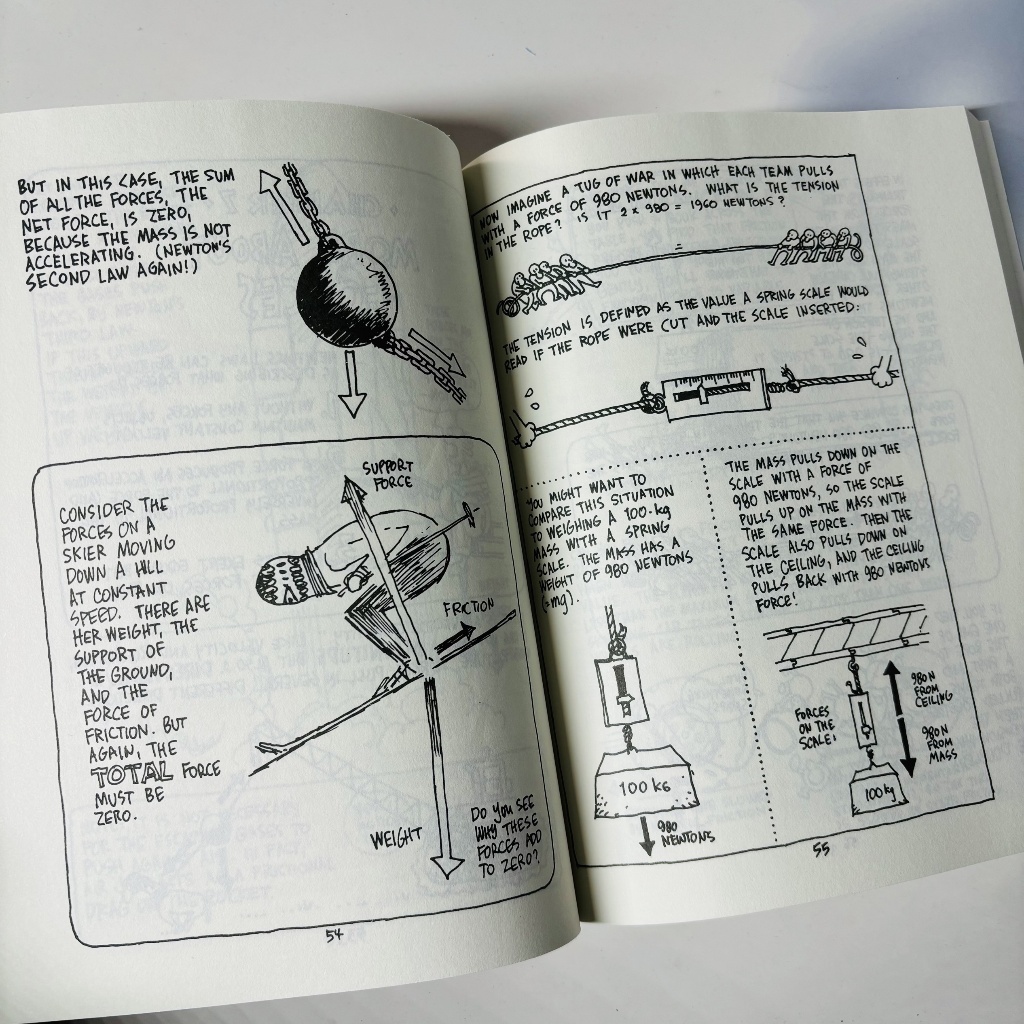 BUT IN THIS CASE, THE SUM
OF ALL THE FORCES, THE
NET FORCE, IS ZERO,
BECAUSE THE MASS IS NOT
ACCELERATING. (NEWTON'S
SECOND LAW AGAIN!)
CONSIDER THE
FORCES ON A
SKIER MOVING
DOWN A HILL
AT CONSTANT
SPEED. THERE ARE
HER WEIGHT, THE
SUPPORT OF
THE GROUND,
AND THE
FORCE OF
FRICTION. BUT
AGAIN, THE
TOTAL FORCE
MUST BE
ZERO.
SUPPORT
FORCE
FRICTION
WEIGHT
DO YOU SEE
WHY THESE
FORCES ADD
TO ZERO?
54
NOW IMAGINE A TUG OF WAR IN WHICH EACH TEAM PULLS
WITH A FORCE OF 980 NEWTONS. WHAT IS THE TENSION
IN THE ROPE? IS IT 2 x 980 = 1960 NEWTONS?
THE TENSION IS DEFINED AS THE VALUE A SPRING SCALE WOULD
READ IF THE ROPE WERE CUT AND THE SCALE INSERTED:
YOU MIGHT WANT TO
COMPARE THIS SITUATION
TO WEIGHING A 100-kg
MASS WITH A SPRING
SCALE. THE MASS HAS A
WEIGHT OF 980 NEWTONS
(=mg).
100 KG
980
NEWTONS
THE MASS PULLS DOWN ON THE
SCALE WITH A FORCE OF
980 NEWTONS, SO THE SCALE
PULLS UP ON THE MASS WITH
THE SAME FORCE. THEN THE
SCALE ALSO PULLS DOWN ON
THE CEILING, AND THE CEILING
PULLS BACK WITH 980 NEWTONS
FORCE!
FORCES
ON THE
SCALE:
980N
FROM
CEILING
980N
FROM
MASS
100kg
55